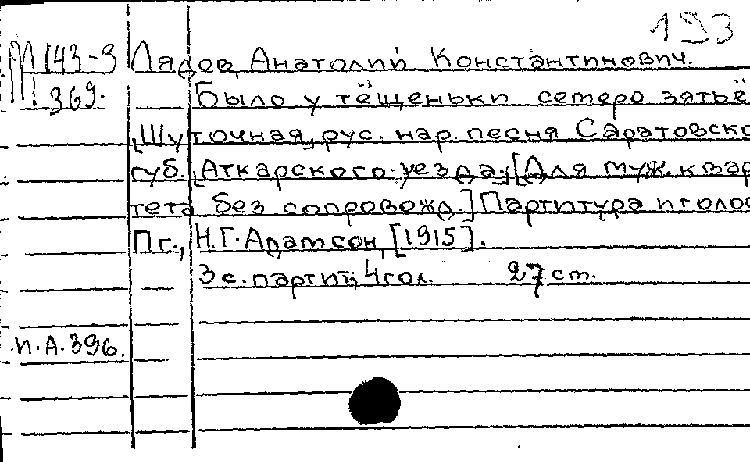 193
М 143-9 Лядов, Анатолий Константинович.
369. Было у тёщеньки семеро затьё
[Шуточная рус. нар. песня Саратовско
губ. Аткарского уезда]. [Для муж. квар
тета без сопровожд.] Партитура и голос
Пг., Н.Г. Адамсон, [1915].
3 с. партит, 4 гол. 27 ст.
н.А.396.